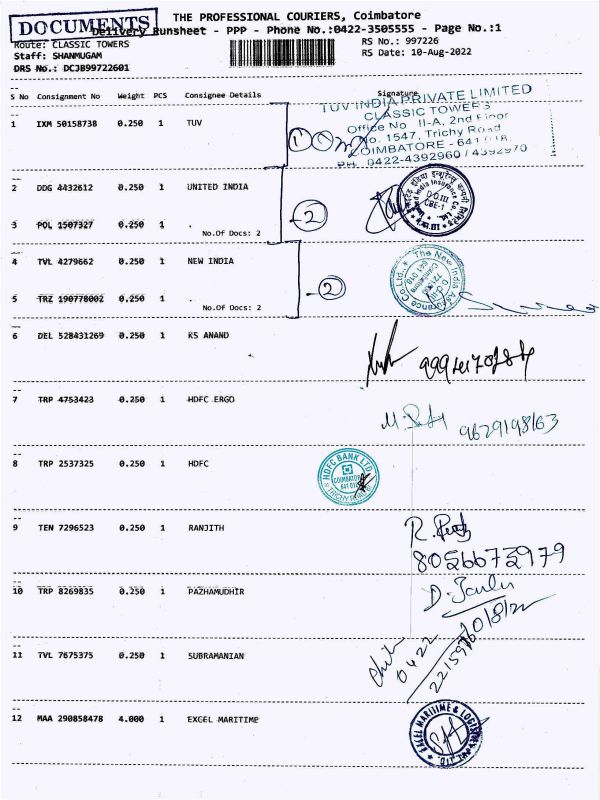 DOCUMENTS
THE PROFESSIONAL COURIERS, Coimbatore
Delivery Runsheet - PPP - Phone No.:0422-3505555 - Page No.:1
Route: CLASSIC TOWERS
RS No.: 997226
Staff: SHANMUGAM
RS Date: 10-Aug-2022
DRS No.: DCJB99722601
S No Consignment No Weight PCS Consignee Details Signature
1 IXM 50158738 0.250 1 TUV
TUV INDIA PRIVATE LIMITED
CLASSIC TOWERS
Office No II-A, 2nd Floor
No. 1547, Trichy Road
COIMBATORE - 641 018.
PH. 0422-4392960 / 4392970
1
2 DDG 4432612 0.250 1 UNITED INDIA
D.O.III
CBE-1
2
3 POL 1507327 0.250 1 .
No.Of Docs: 2
4 TVL 4279662 0.250 1 NEW INDIA
The New India Assurance Co.Ltd.
2
5 TRZ 190778002 0.250 1 .
No.Of Docs: 2
6 DEL 528431269 0.250 1 KS ANAND
7 TRP 4753423 0.250 1 HDFC ERGO
9629198163
8 TRP 2537325 0.250 1 HDFC
HDFC BANK LTD
COIMBATORE
641 018
9 TEN 7296523 0.250 1 RANJITH
8056673979
10 TRP 8269835 0.250 1 PAZHAMUDHIR
10/8/22
11 TVL 7675375 0.250 1 SUBRAMANIAN
0422
12 MAA 290858478 4.000 1 EXCEL MARITIME
EXCEL MARITIME & LOGISTICS PVT. LTD.